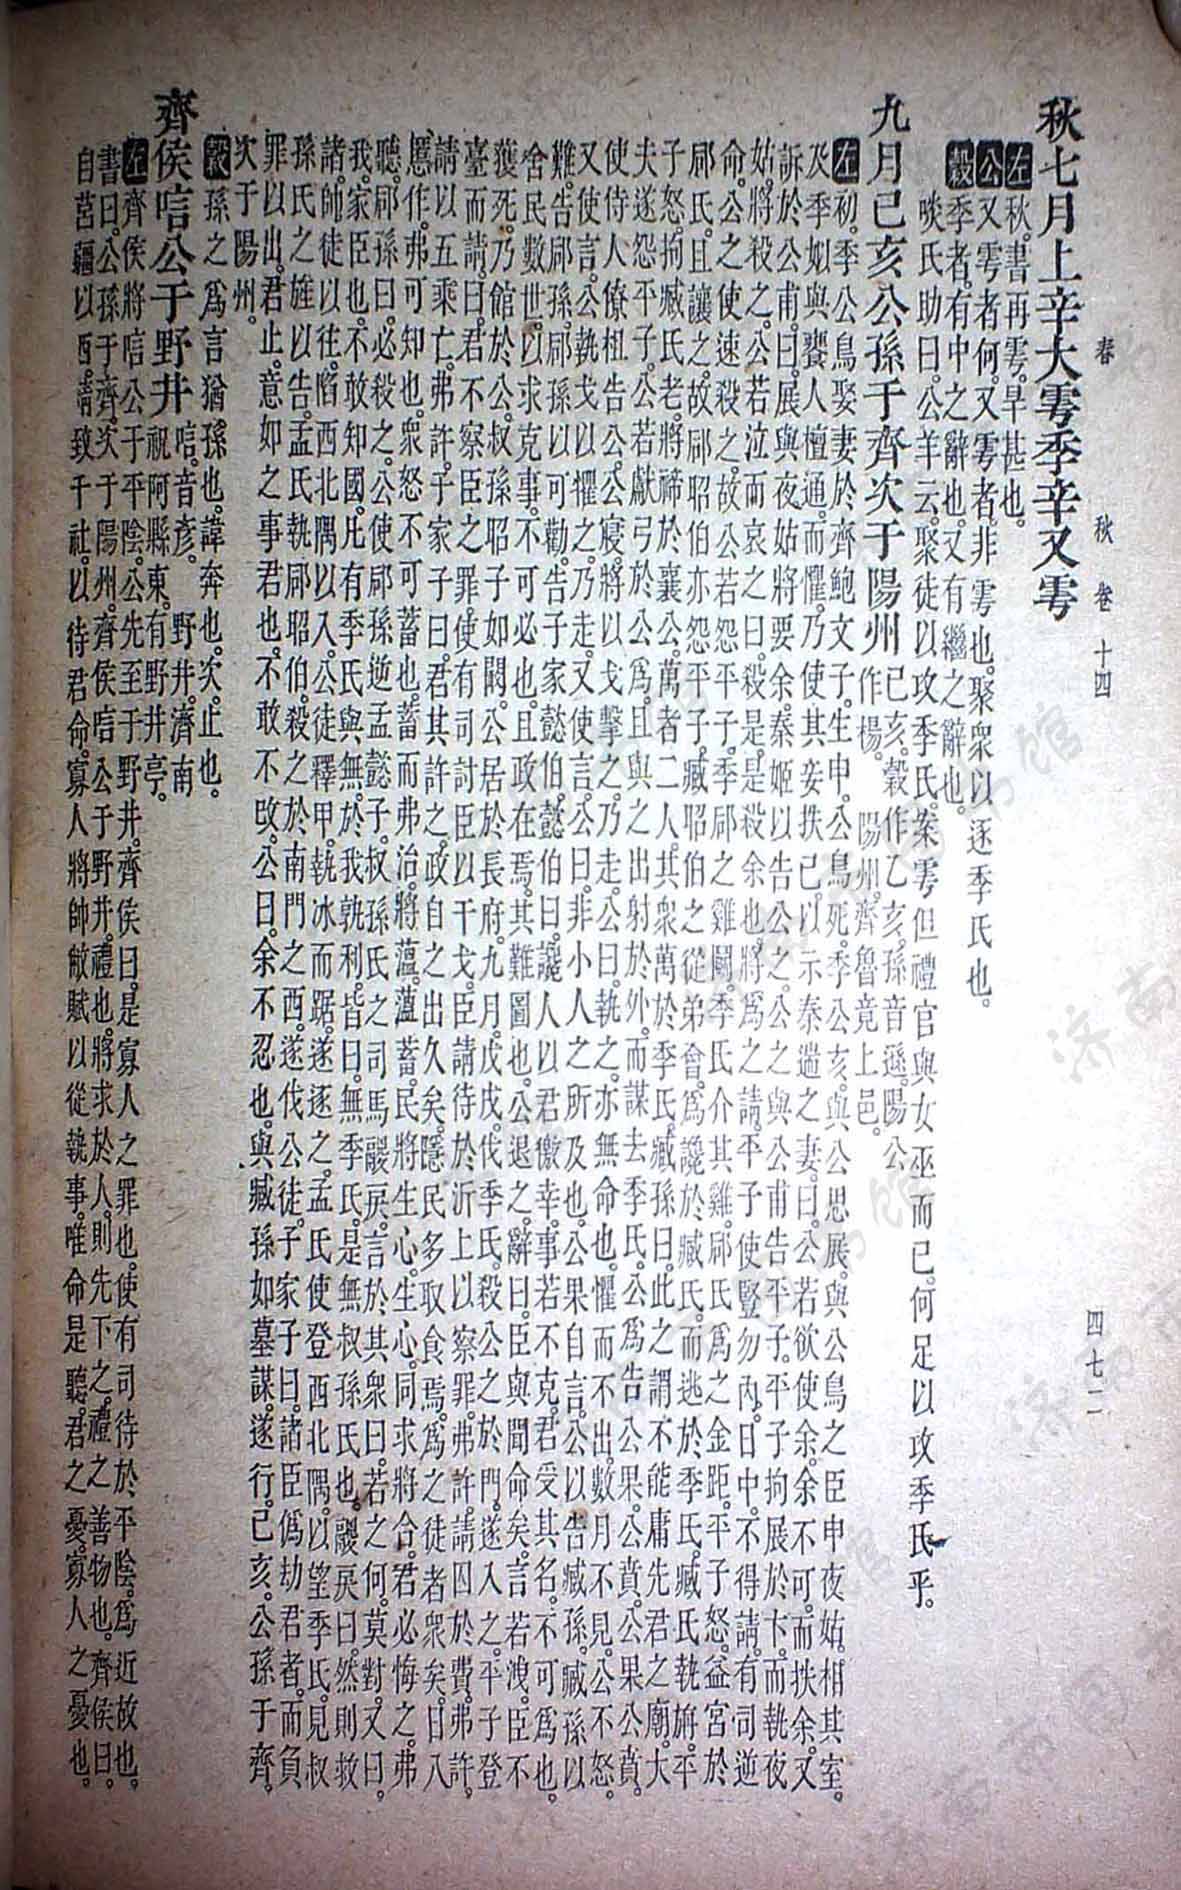 春秋卷十四
四七二
秋七月上辛大雩季辛又雩
左秋書再雩旱甚也。
公又雩者何又雩者非雩也聚衆以逐季氏也。
穀季者有中之辭也又有繼之辭也。
啖氏助曰公羊云聚徒以攻季氏案雩但禮官與女巫而已何足以攻季氏乎。
九月己亥公孫于齊次于陽州己亥穀作乙亥孫音遜陽公
作楊。陽州齊魯竟上邑。
左初季公鳥娶妻於齊鮑文子生申公鳥死季公亥與公思展與公鳥之臣申夜姑相其室
及季姒與饔人檀通而懼乃使其妾抶己以示秦遄之妻曰公若欲使余余不可而抶余又
訴於公甫曰展與夜姑將要余秦姬以告公之公之與公甫告平子平子拘展於卞而執夜
姑將殺之公若泣而哀之曰殺是是殺余也將爲之請平子使豎勿內日中不得請有司逆
命公之使速殺之故公若怨平子季郈之雞鬭季氏介其雞郈氏爲之金距平子怒益宮於
郈氏且讓之故郈昭伯亦怨平子臧昭伯之從弟會爲讒於臧氏而逃於季氏臧氏執旃平
子怒拘臧氏老將禘於襄公萬者二人其衆萬於季氏臧孫曰此之謂不能庸先君之廟大
夫遂怨平子公若獻弓於公爲且與之出射於外而謀去季氏公爲告公果公賁公果公賁
使侍人僚柤告公公寢將以戈擊之乃走公曰執之亦無命也懼而不出數月不見公不怒
又使言公執戈以懼之乃走又使言公曰非小人之所及也公果自言公以告臧孫臧孫以
難告郈孫郈孫以可勸告子家懿伯懿伯曰讒人以君徼幸事若不克君受其名不可爲也
舍民數世以求克事不可必也且政在焉其難圖也公退之辭曰臣與聞命矣言若洩臣不
獲死乃館於公叔孫昭子如闞公居於長府九月戊戌伐季氏殺公之於門遂入之平子登
臺而請曰君不察臣之罪使有司討臣以干戈臣請待於沂上以察罪弗許請囚於費弗許
請以五乘亡弗許子家子曰君其許之政自之出久矣隱民多取食焉爲之徒者衆矣日入
慝作弗可知也衆怒不可蓄也蓄而弗治將薀薀蓄民將生心生心同求將合君必悔之弗
聽郈孫曰必殺之公使郈孫逆孟懿子叔孫氏之司馬鬷戾言於其衆曰若之何莫對又曰
我家臣也不敢知國凡有季氏與無於我孰利皆曰無季氏是無叔孫氏也鬷戾曰然則救
諸帥徒以往陷西北隅以入公徒釋甲執冰而踞遂逐之孟氏使登西北隅以望季氏見叔
孫氏之旌以告孟氏執郈昭伯殺之於南門之西遂伐公徒子家子曰諸臣僞劫君者而負
罪以出君止意如之事君也不敢不改公曰余不忍也與臧孫如墓謀遂行己亥公孫于齊
次于陽州。
穀孫之爲言猶孫也諱奔也次止也。
齊侯唁公于野井唁音彥。野井濟南
祝阿縣東有野井亭。
左齊侯將唁公于平陰公先至于野井齊侯曰是寡人之罪也使有司待於平陰爲近故也。
書曰公孫于齊次于陽州齊侯唁公于野井禮也將求於人則先下之禮之善物也齊侯曰
自莒疆以西請致千社以待君命寡人將帥敝賦以從執事唯命是聽君之憂寡人之憂也。